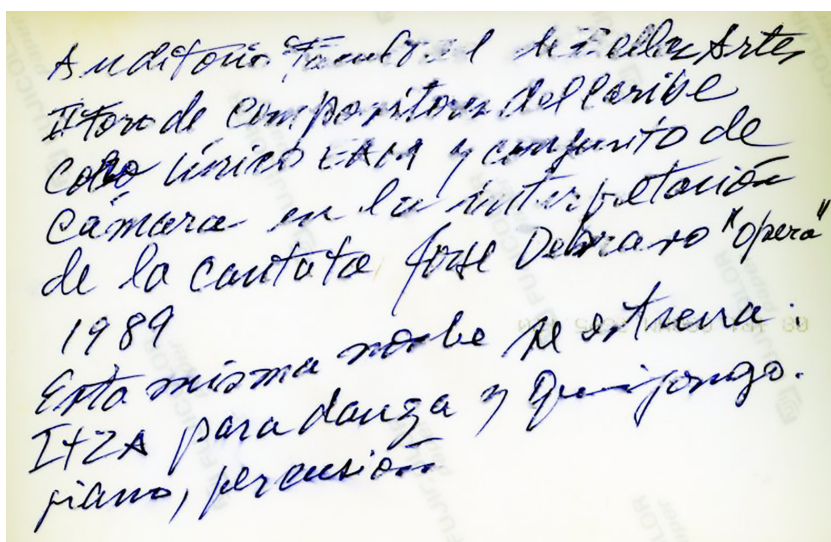 Auditorio Facultad de Bellas Artes
II Foro de Compositores del Caribe
Coro Lírico EAM y conjunto de
Cámara en la interpretación
de la cantata Jorge Debravo "opera"
1989
Esta misma noche se estrena.
ITZA para danza y Quijongo.
piano, percusión